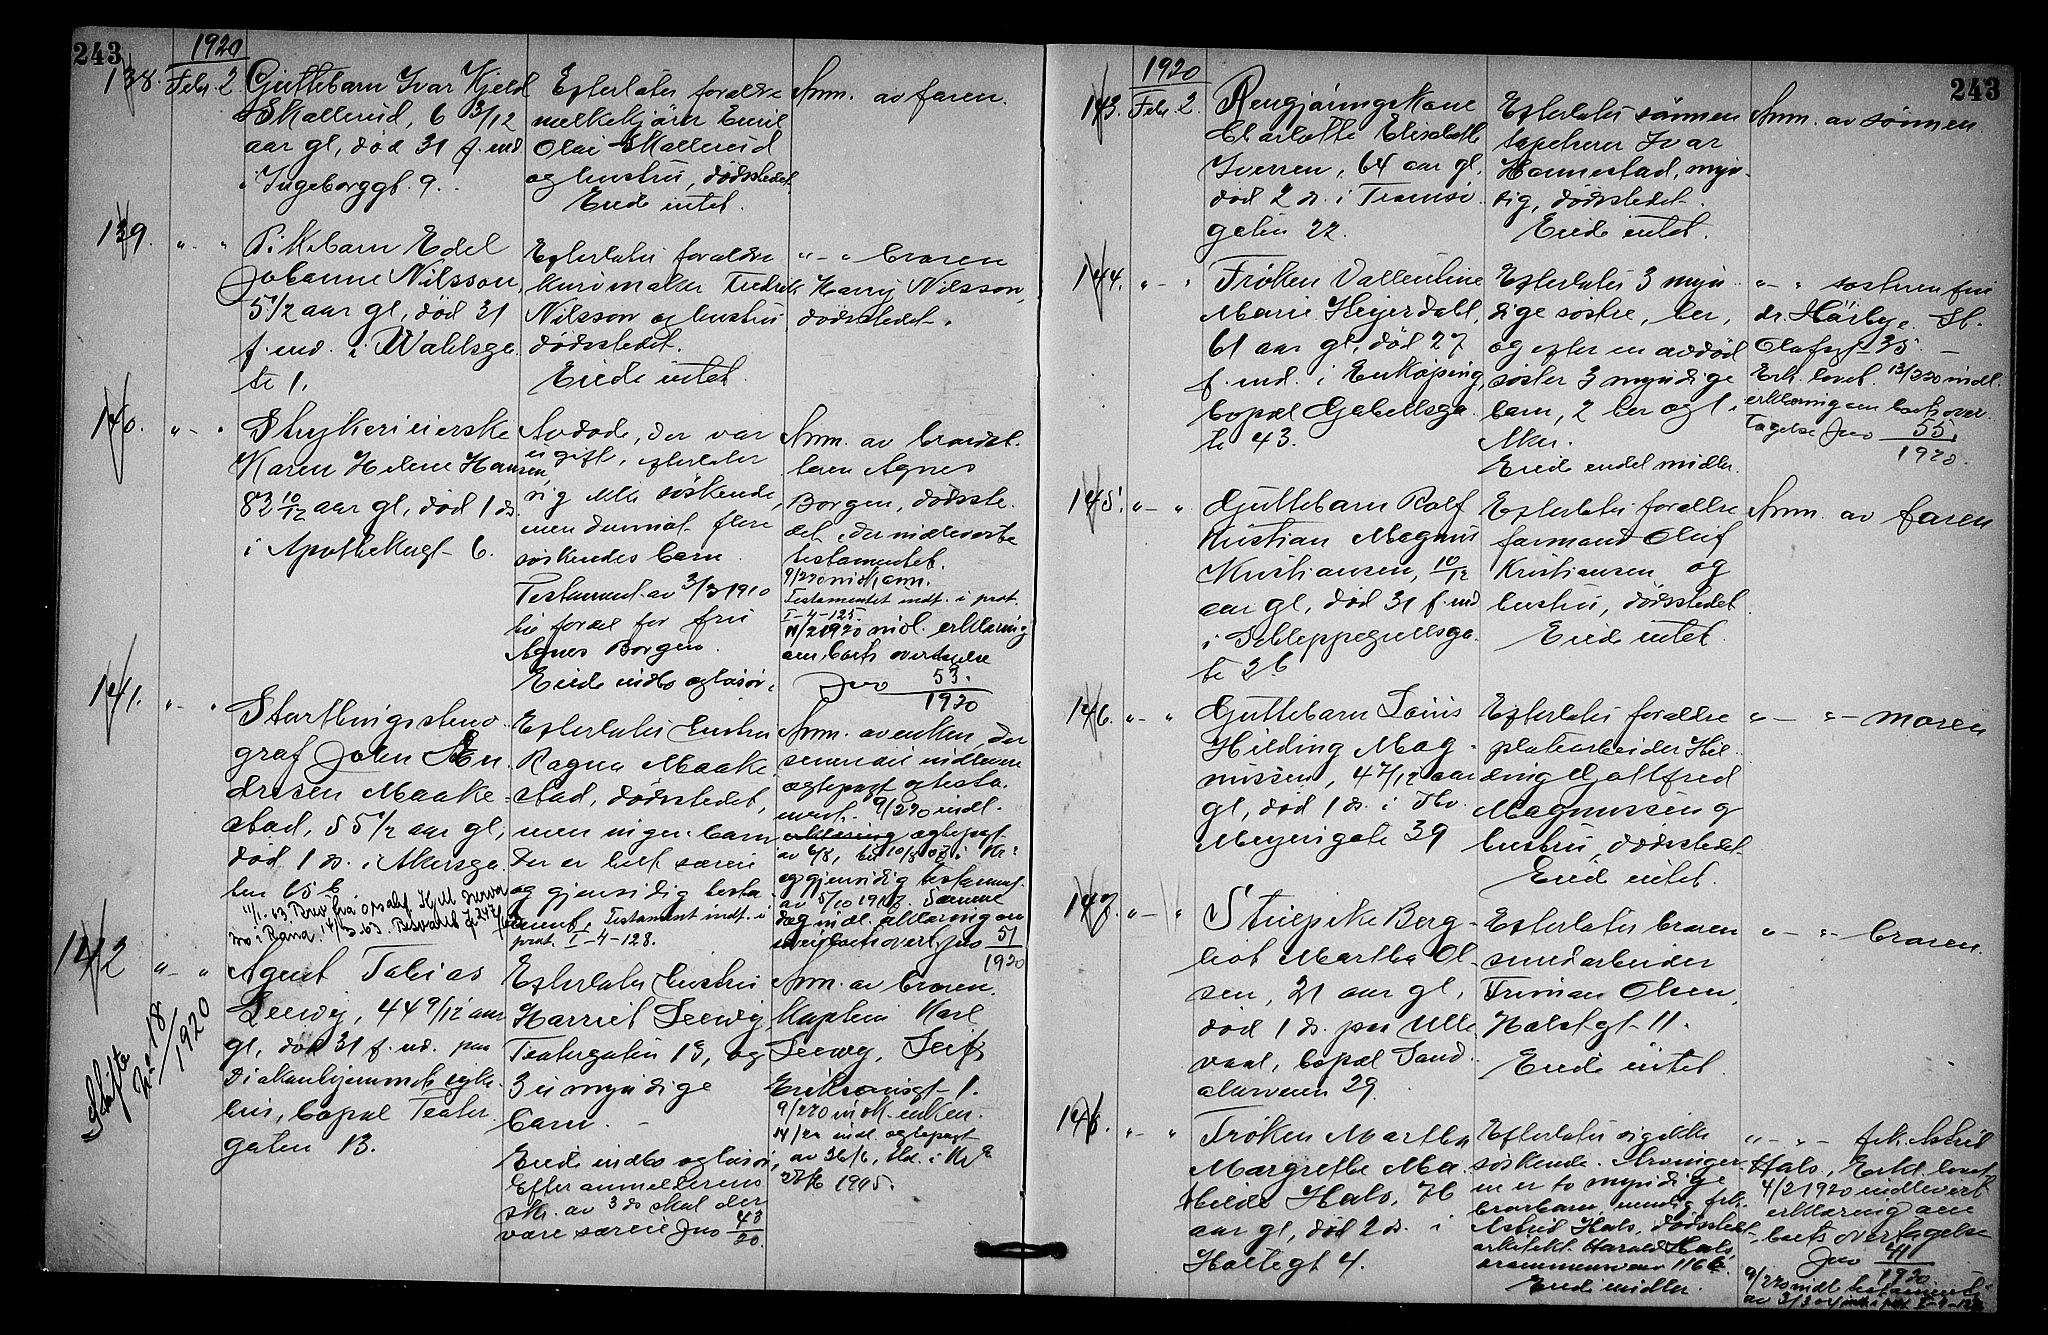 243
1920
138. Febr. 2.
Guttebarn Ivar Kjeld
Skallerud, 6 3/12
aar gl, død 31 f. md.
i Ingeborggt. 9.
Efterlater forældre
melkekjører Emil
Olai Skallerud
og hustru, dødsstedet.
Eiede intet.
Anm. av faren.
139. " - "
Pikebarn Edel
Johanne Nilsson,
5 1/2 aar gl, død 31
f. md. i Wahlsga-
te 1.
Efterlater forældre
kurvmaker Fredrik
Nilsson og hustru
dødsstedet.
Eiede intet.
" - " broren
Harry Nilsson,
dødsstedet.
140. " - "
Strykerieierske
Karen Helene Hansen,
83 10/12 aar gl, død 1 ds.
i Apothekergt. 6.
Avdøde, der var
ugift, efterlater
sig ikke søskende,
men derimot flere
søskendes barn.
Testament av 3/3 1910
til fordel for fru
Agnes Borgen.
Eiede indbo og løsøre.
Anm. av brordat-
teren Agnes
Borgen, dødsste-
det, der indleverte
testamentet.
9/2 20 indk. anm.
Testamentet indf. i prot.
I-4-125.
11/2 1920 indl. erklæring
om boets overtagelse
Jno 53.
1920
141. " - "
Stortingssteno-
graf John An-
dresen Maake-
stad, 55 1/2 aar gl,
død 1 ds. i Akersga-
ten 65 b
Efterlater hustru
Ragna Maake-
stad, dødsstedet,
men ingen barn
Der er helt særeie
og gjensidig testa-
ment. Testament indf. i
prot. I-4-128.
Anm. av enken, der
senere vil indlevere
egtepagt og testa-
ment. 9/2 20 indl.
erklæring egtepagt
og gjensidig testament
av 5/10 1917. Samme
dag indl. erklæring om
boets overt. Jno 51
1920
142 " - "
Skifte
No 18
1920
Agent Tobias
Seewy, 44 9/12 aar
gl, død 31 f. md. paa
Diakonhjemmets syke-
hus, bopæl Teater-
gaten 13.
Efterlater hustru
Harriet Seewy
Teatergaten 13, og
3 umyndige
barn. -
Eiede indbo og løsøre,
Efter anmelderens
skr. av 3 ds skal der
være særeie Jno 43
20.
Anm. av broren,
kaptein Karl
Seewy, Leif
Erikssønsgt. 1.
9/2 20 indk. enken.
14/2 20 indl. egtepagt
1905.
243
1920
143. Febr. 2.
Rengjøringskone
Charlotte Elisabeth
Iversen, 64 aar gl.
død 2 ds. i Tromsø-
gaten 22.
Efterlater sønnen
tapetserer Ivar
Hannestad, myn-
dig, dødsstedet.
Eiede intet.
Anm. av sønnen.
144. " - "
Frøken Vallentine
Marie Heyerdahl,
61 aar gl, død 27
f. md. i Enköping,
bopæl Gabelsga-
te 43.
Efterlater 3 myn-
dige søstre, her,
og efter en avdød
søster 3 myndige
barn, 2 her og 1 i
Aker.
Eiede endel midler.
" - " søsteren fru
dr. Hårbye, St.
Olafsgt. 35. -
Erk. lovet. 13/2 20 indl.
erklæring om boets over-
tagelse Jno 55.
1920.
145. " - "
Guttebarn Rolf
Kristian Magnus
Kristiansen, 10/12
aar gl, død 31 f. md
i Schleppegrellsga-
te 26
Efterlater forældre
formand Oluf
Kristiansen og
hustru, dødsstedet.
Eiede intet.
Anm. av faren
146. " - "
Guttebarn Louis
Hilding Mag-
nussen, 4 7/12 aar
gl, død 1 ds. i Thv.
Meyersgate 39
Efterlater forældre
platearbeider Hil-
ding Gottfred
Magnussen og
hustru, dødsstedet.
Eiede intet.
" - " - moren
147. " - "
Stuepike Berg-
liot Martha Ol-
sen, 21 aar gl,
død 1 ds. paa Ulle-
vaal, bopæl Sand-
akerveien 29.
Efterlater broren
smedarbeider
Trimian Olsen,
Holstgt. 11.
Eiede intet.
" - " - broren.
148. " - "
Frøken Martha
Margrethe Ma-
thilde Hals,
aar gl, død 2 ds. i
Holtegt 4.
Efterlater sig ikke
søskende. Arvinger
en er to myndige
brorbarn, nemlig frk.
Astrid Hals, dødsstedet,
arkitekt Harald Hals,
116 b.
Eiede midler.
" - " - frk. Astrid
Hals, Erkl. lovet
4/2 1920 indlevert
erklæring om
boets overtagelse
Jno 41
1920.
9/2 20 indl. testament